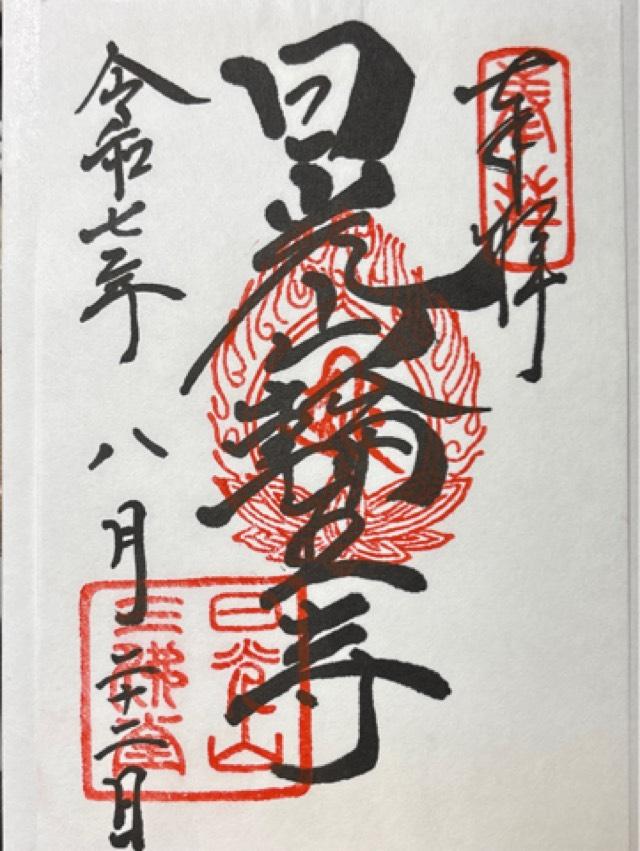 奉拝
奉拝
日光山輪王寺
日光山
三佛堂
令和七年 八月二十二日